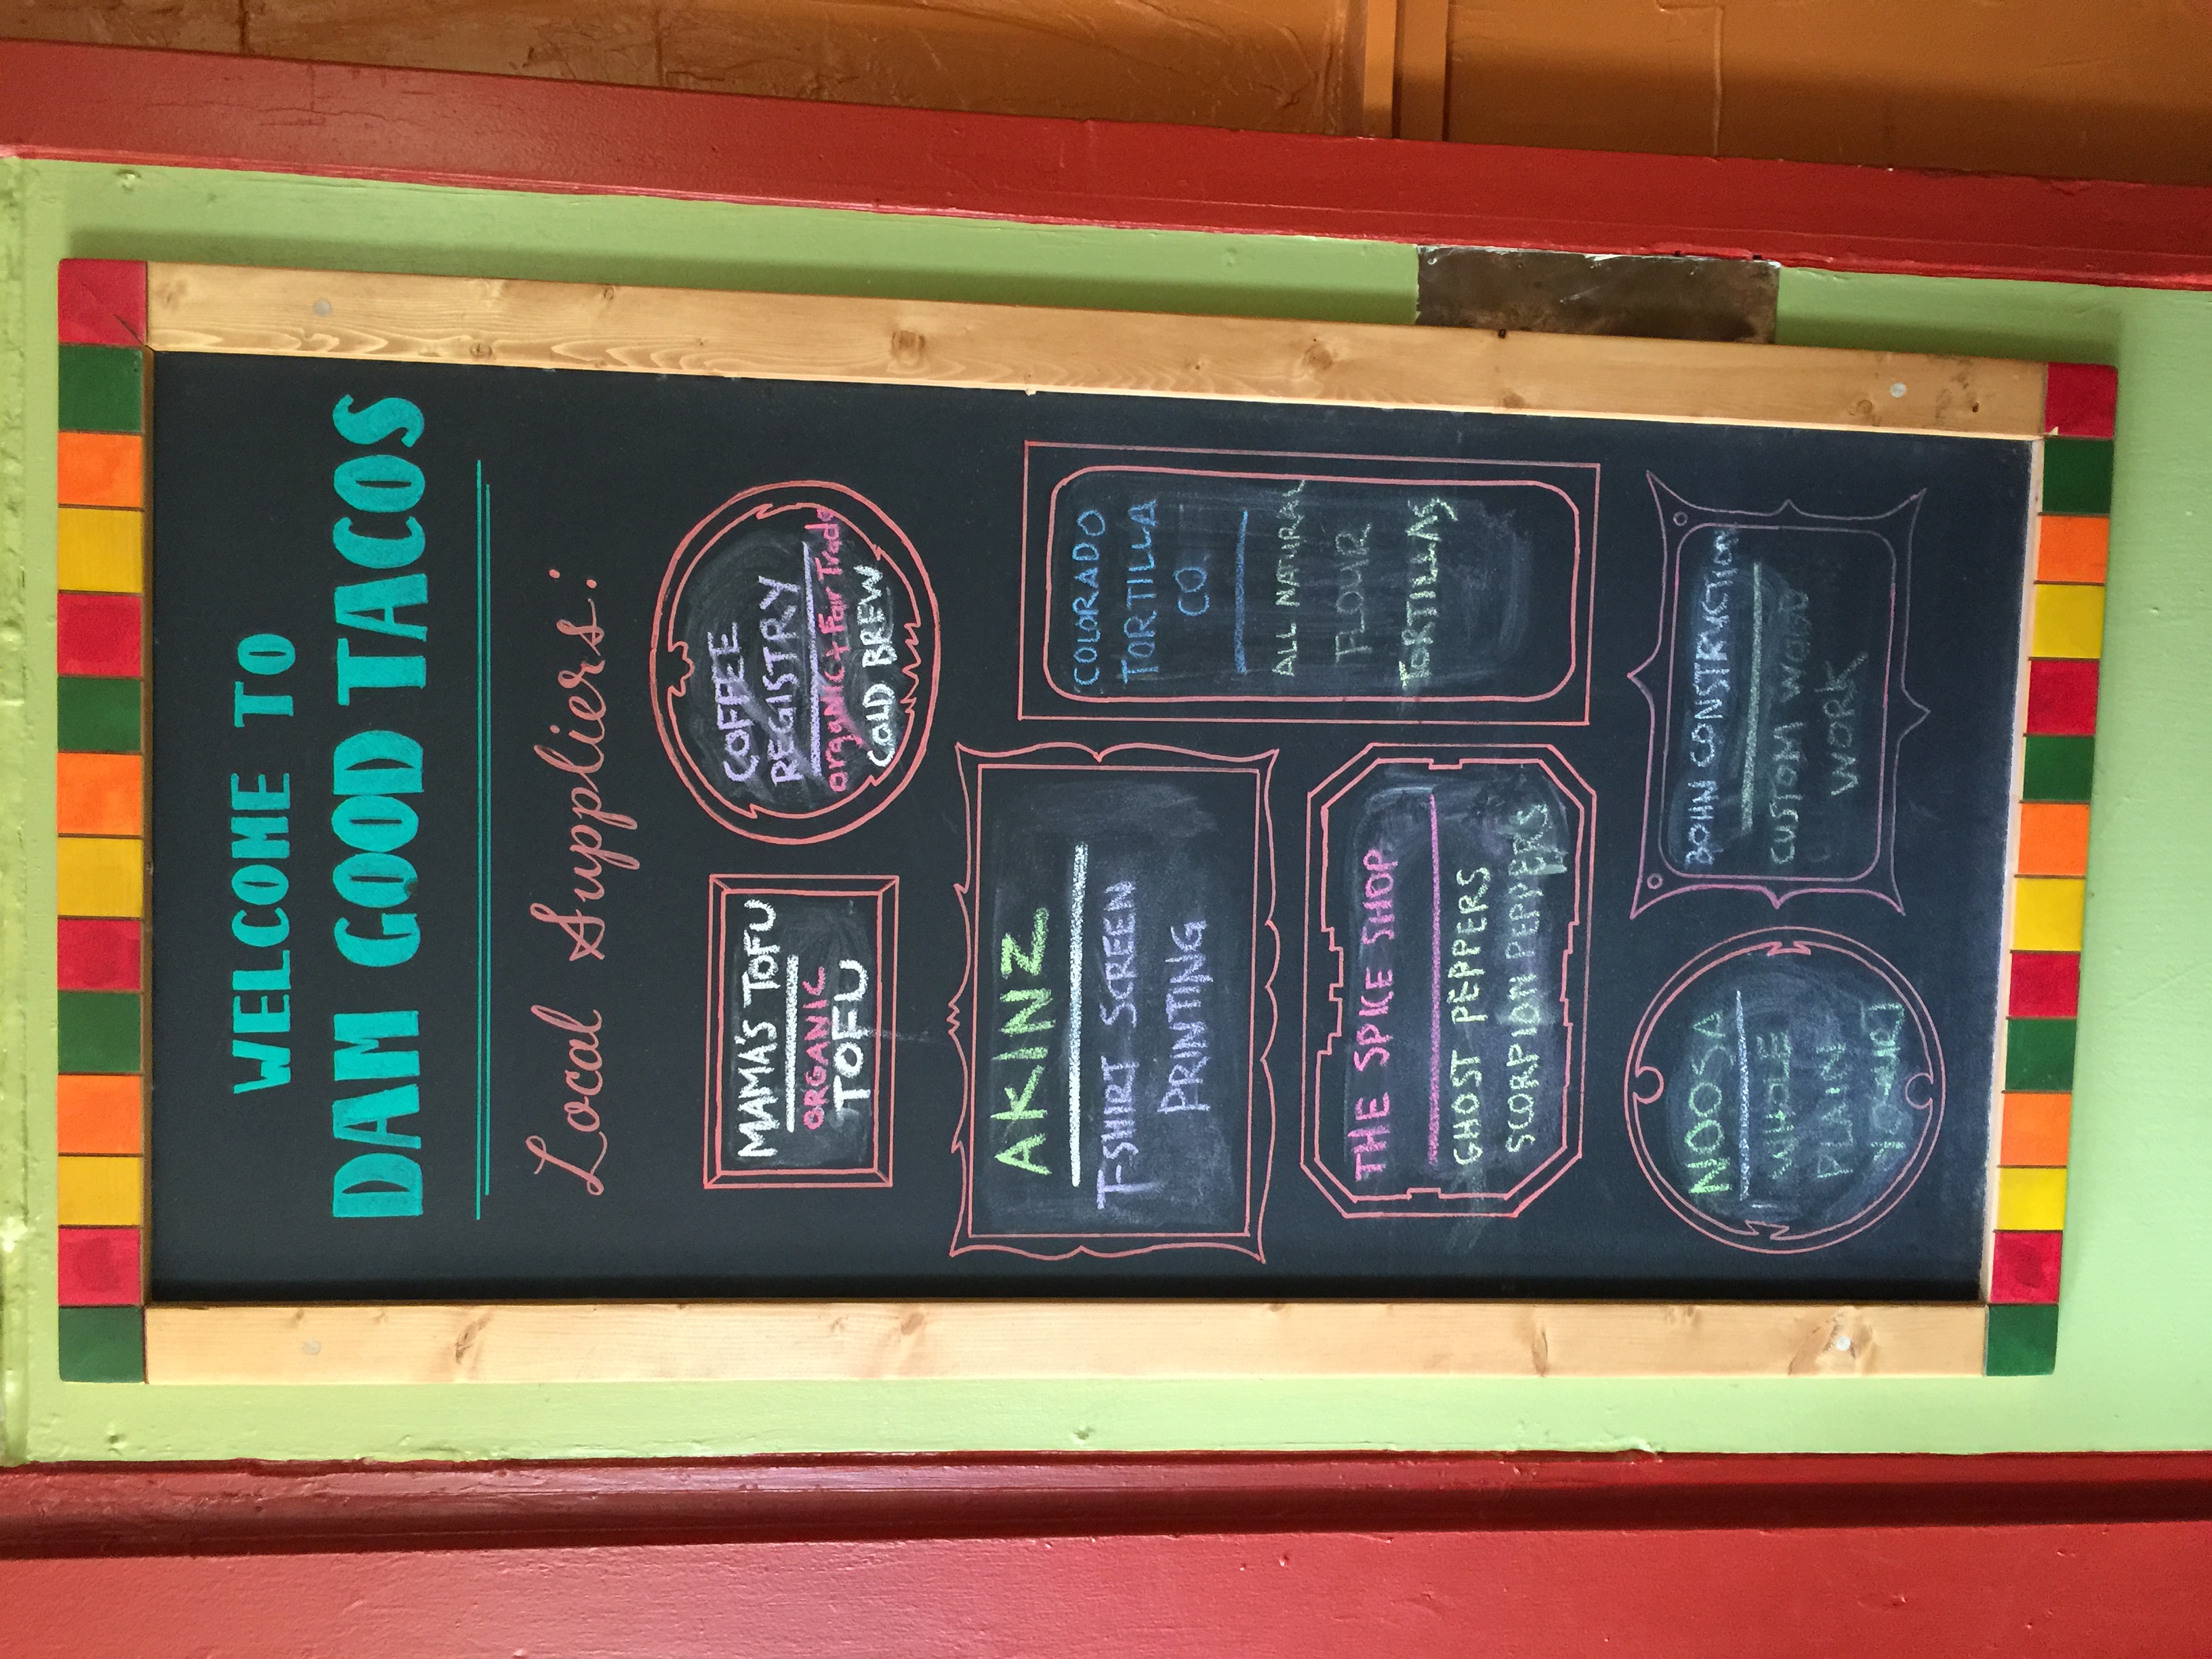 WELCOME TO
DAM GOOD TACOS
Local Suppliers:
MAMA'S TOFU
ORGANIC
TOFU
COFFEE
REGISTRY
organic + Fair Trade
COLD BREW
AKINZ
T-SHIRT SCREEN
PRINTING
COLORADO
TORTILLA
CO
ALL NATURAL
FLOUR
TORTILLAS
THE SPICE SHOP
GHOST PEPPERS
SCORPION PEPPERS
NOOSA
WHOLE
PLAIN
CONSTRUCTION
CUSTOM WOOD
WORK